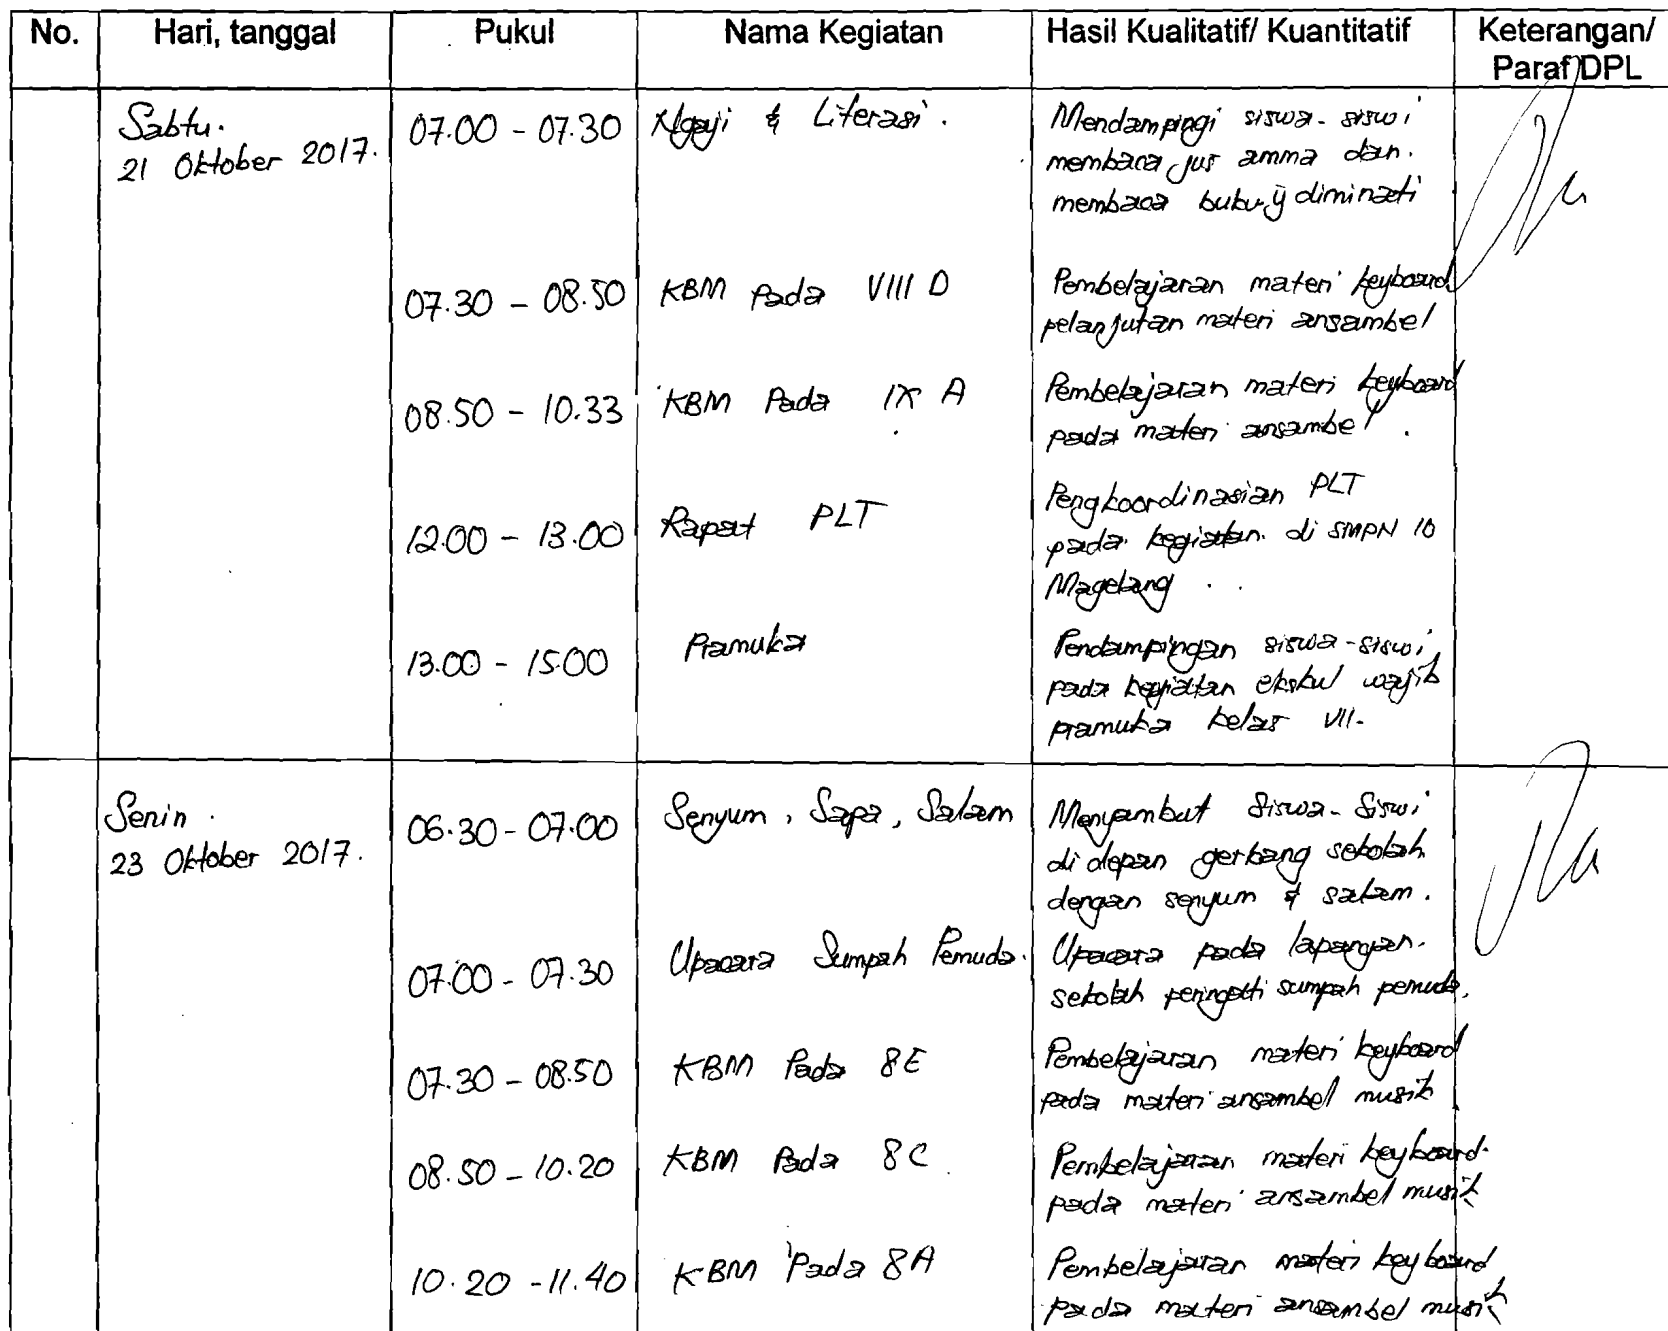 No. Hari, tanggal Pukul Nama Kegiatan Hasil Kualitatif/ Kuantitatif Keterangan/
Paraf DPL
Sabtu. 07.00 - 07.30 Ngaji & Literasi. Mendampingi siswa-siswi
21 Oktober 2017. membaca jus amma dan.
membaca buku yg diminati
07.30 - 08.50 KBM Pada VIII D Pembelajaran materi keyboard
pelanjutan materi ansambel
08.50 - 10.33 KBM Pada IX A Pembelajaran materi keyboard
pada materi ansambel.
12.00 - 13.00 Rapat PLT Pengkoordinasian PLT
pada kegiatan di SMPN 10
Magelang.
13.00 - 15.00 Pramuka Pendampingan siswa-siswi
pada kegiatan ekskul wajib
pramuka kelas VII.
Senin. 06.30 - 07.00 Senyum, Sapa, Salam Menyambut Siswa-Siswi
23 Oktober 2017. di depan gerbang sekolah
dengan senyum & salam.
07.00 - 07.30 Upacara Sumpah Pemuda. Upacara pada lapangan.
sekolah peringati sumpah pemuda.
07.30 - 08.50 KBM Pada 8E Pembelajaran materi keyboard
pada materi ansambel musik
08.50 - 10.20 KBM Pada 8C Pembelajaran materi keyboard.
pada materi ansambel musik
10.20 - 11.40 KBM Pada 8A Pembelajaran materi keyboard
pada materi ansambel musik